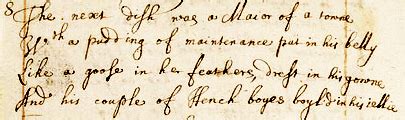 8 The next dish was a Maior of a towne
Wth a pudding of maintenance put in his belly
Like a goose in her feathers, drest in his gowne
And his couple of Hench boyes boyld in his iellie